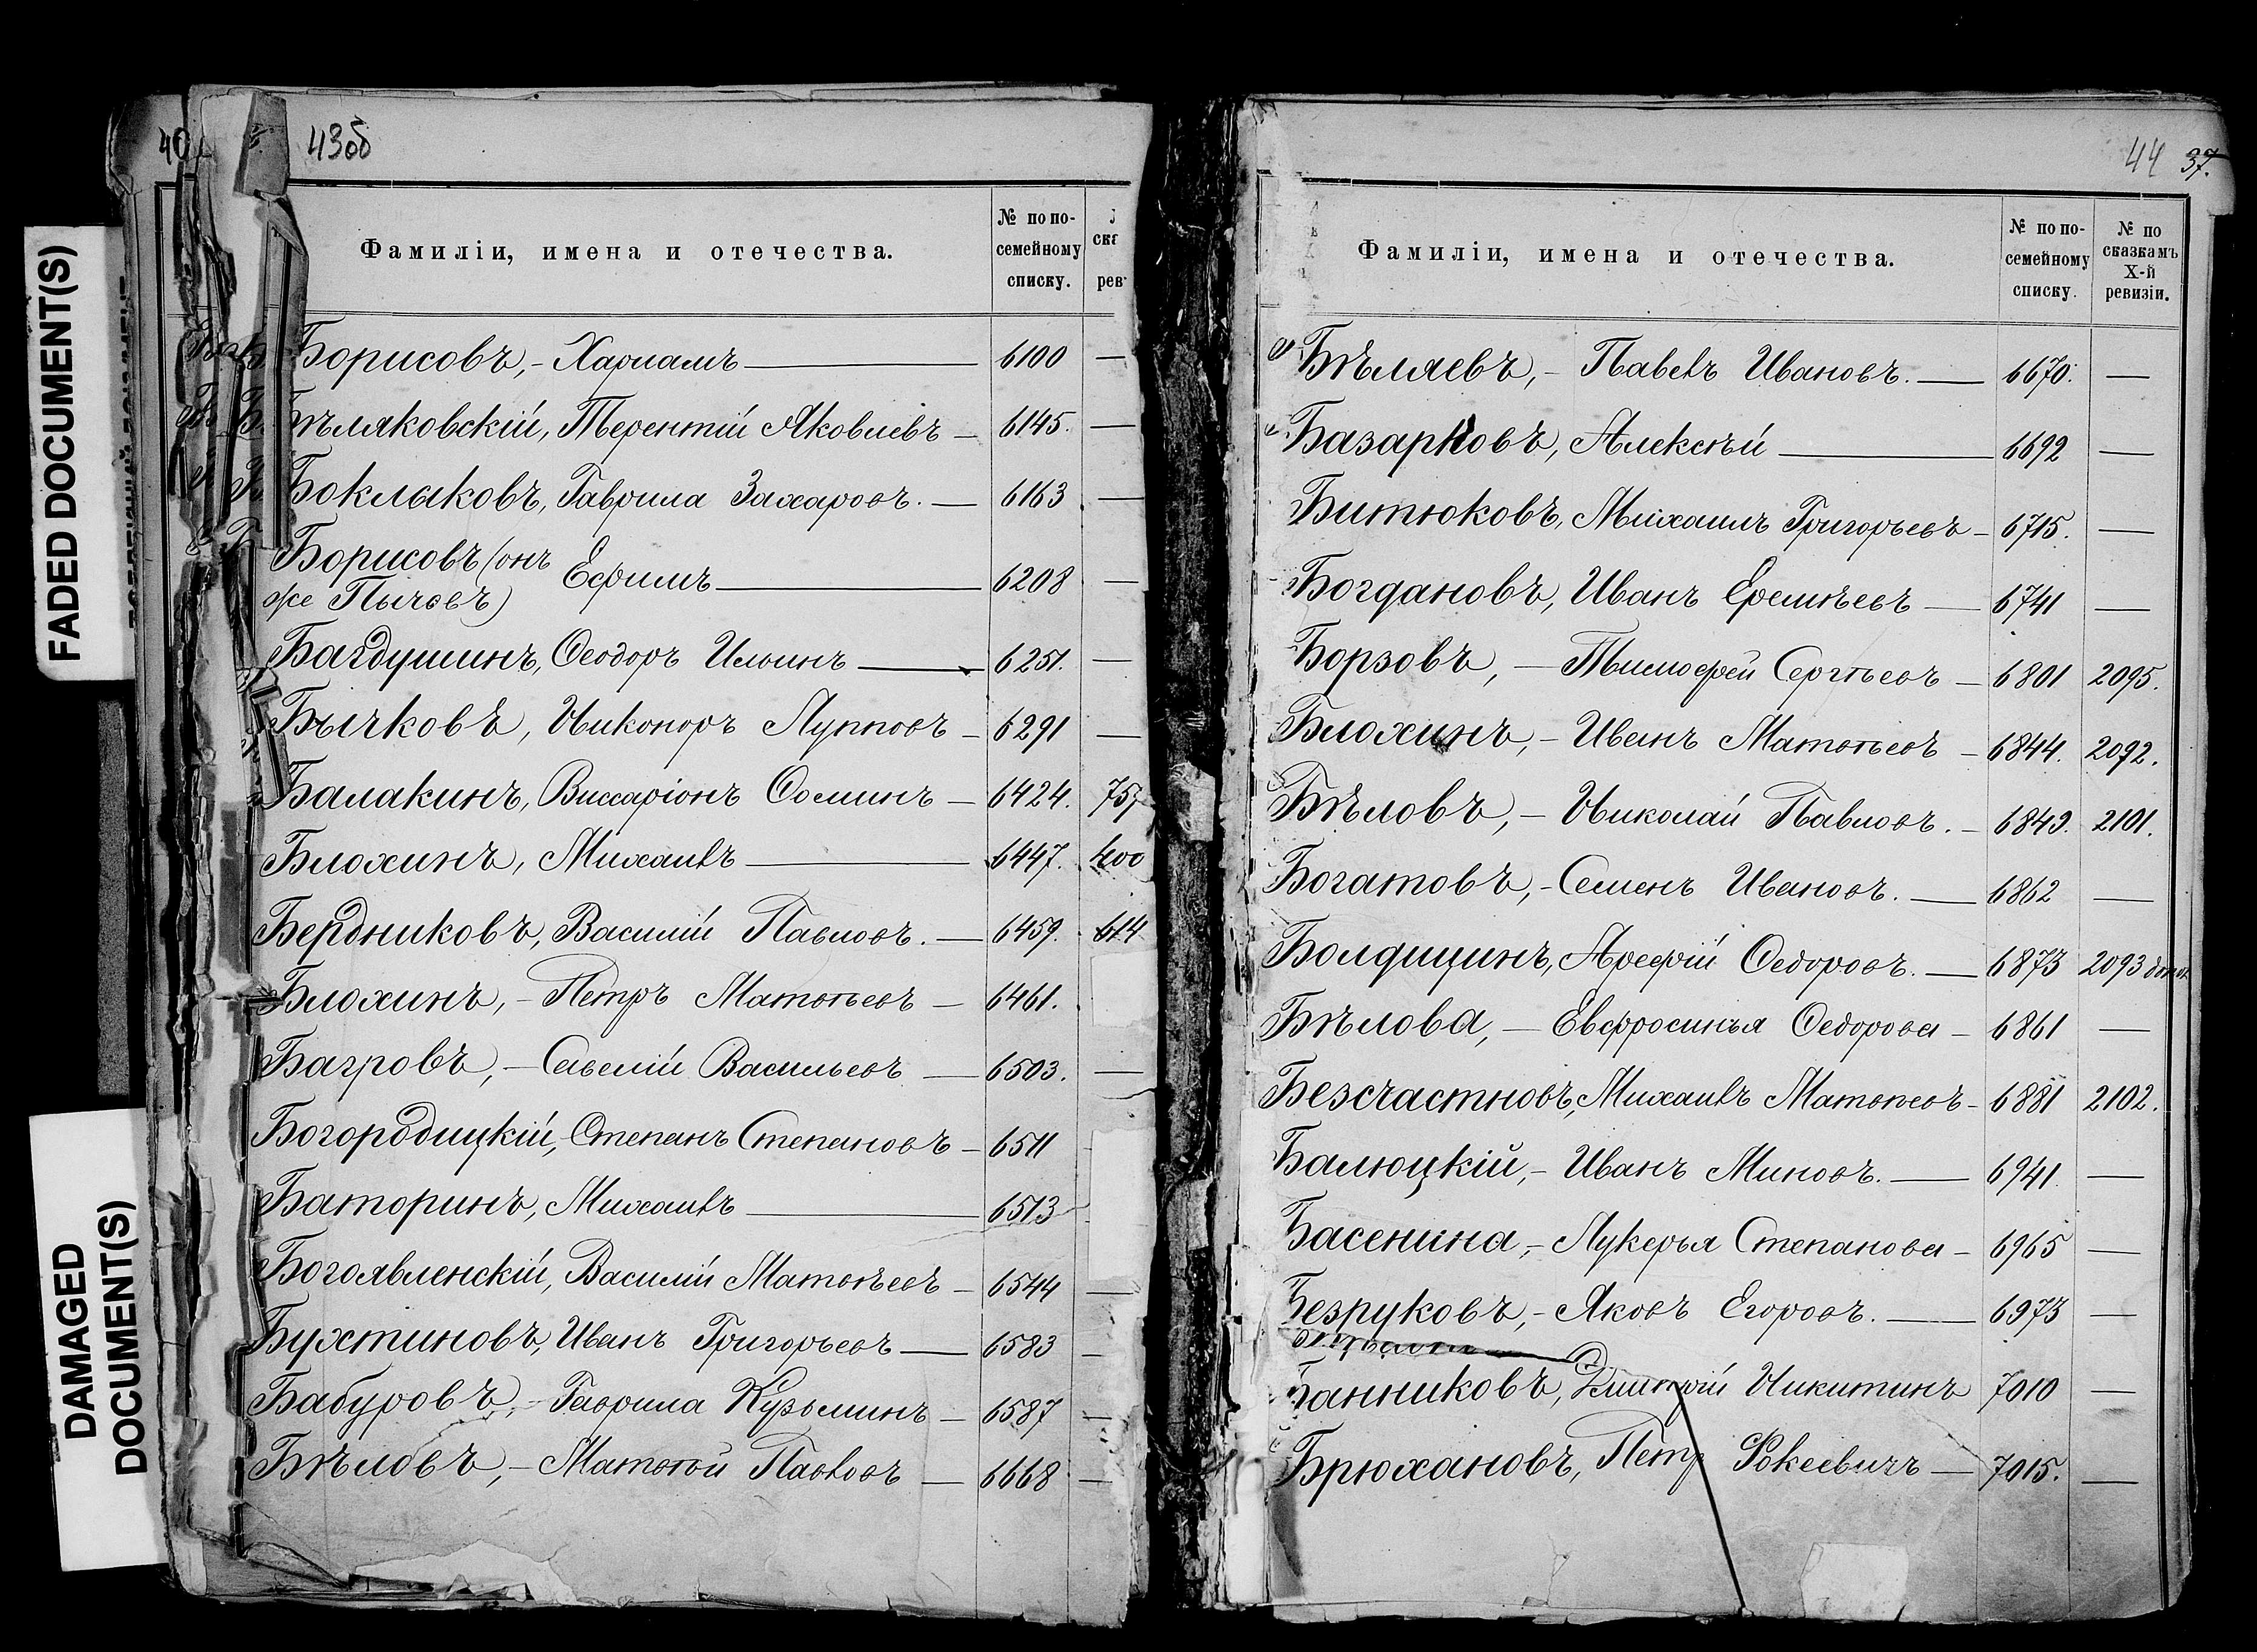 FADED DOCUMENT(S)
DAMAGED
DOCUMENT(S)
40
43об
Фамиліи, имена и отечества.
№ по по-
семейному
списку.
Борисовъ, - Харламъ — 6100 —
Бѣляковскій, Терентій Яковлевъ — 6145. —
Боклыковъ, Гаврила Захаровъ. — 6163 —
Борисовъ (онъ
же Пычовъ) Ефимъ — 6208 —
Багдушинъ, Ѳеодоръ Ильинъ — 6251. —
Бычковъ, Никоноръ Лупповъ — 6291 —
Балакинъ, Виссаріонъ Ѳоминъ — 6424. 757
Блохинъ, Михаилъ — 6447. 400
Бердниковъ, Василій Павловъ. — 6459. 614
Блохинъ, - Петръ Матвѣевъ — 6461.
Багровъ, - Савелій Васильевъ — 6503. —
Богородицкій, Степанъ Степановъ — 6511
Баторинъ, Михаилъ — 6513
Богоявленскій, Василій Матвѣевъ — 6544 —
Бухтиновъ, Иванъ Григорьевъ — 6583 —
Бабуровъ, - Гаврила Кузьминъ — 6587 —
Бѣловъ, - Матвѣй Павловъ — 6668 —
44 37.
Фамиліи, имена и отечества.
№ по по-
семейному
списку.
№ по
сказкамъ
X-й
ревизіи.
Бѣляевъ, - Павелъ Ивановъ. — 6670. —
Базарновъ, Алексѣй — 6692 —
Битюковъ, Михаилъ Григорьевъ — 6715. —
Богдановъ, Иванъ Еремѣевъ — 6741 —
Борзовъ, — Тимофей Сергѣевъ — 6801 2095.
Блохинъ, - Иванъ Матвѣевъ — 6844. 2092.
Бѣловъ, - Николай Павловъ. — 6849. 2101.
Богатовъ, - Семенъ Ивановъ. — 6862 —
Болдицинъ, Арефій Ѳедоровъ. — 6873 2093
Бѣлова, — Евфросинья Ѳедорова — 6861 —
Безсчастновъ, Михаилъ Матвѣевъ — 6881 2102.
Балюцкій, - Иванъ Миновъ. — 6941 —
Басенина, - Лукерья Степанова — 6965 —
Безруковъ, - Яковъ Егоровъ. — 6973 —
Банниковъ, Дмитрій Никитинъ 7010 —
Брюхановъ, Петръ Фокеевичъ — 7015. —